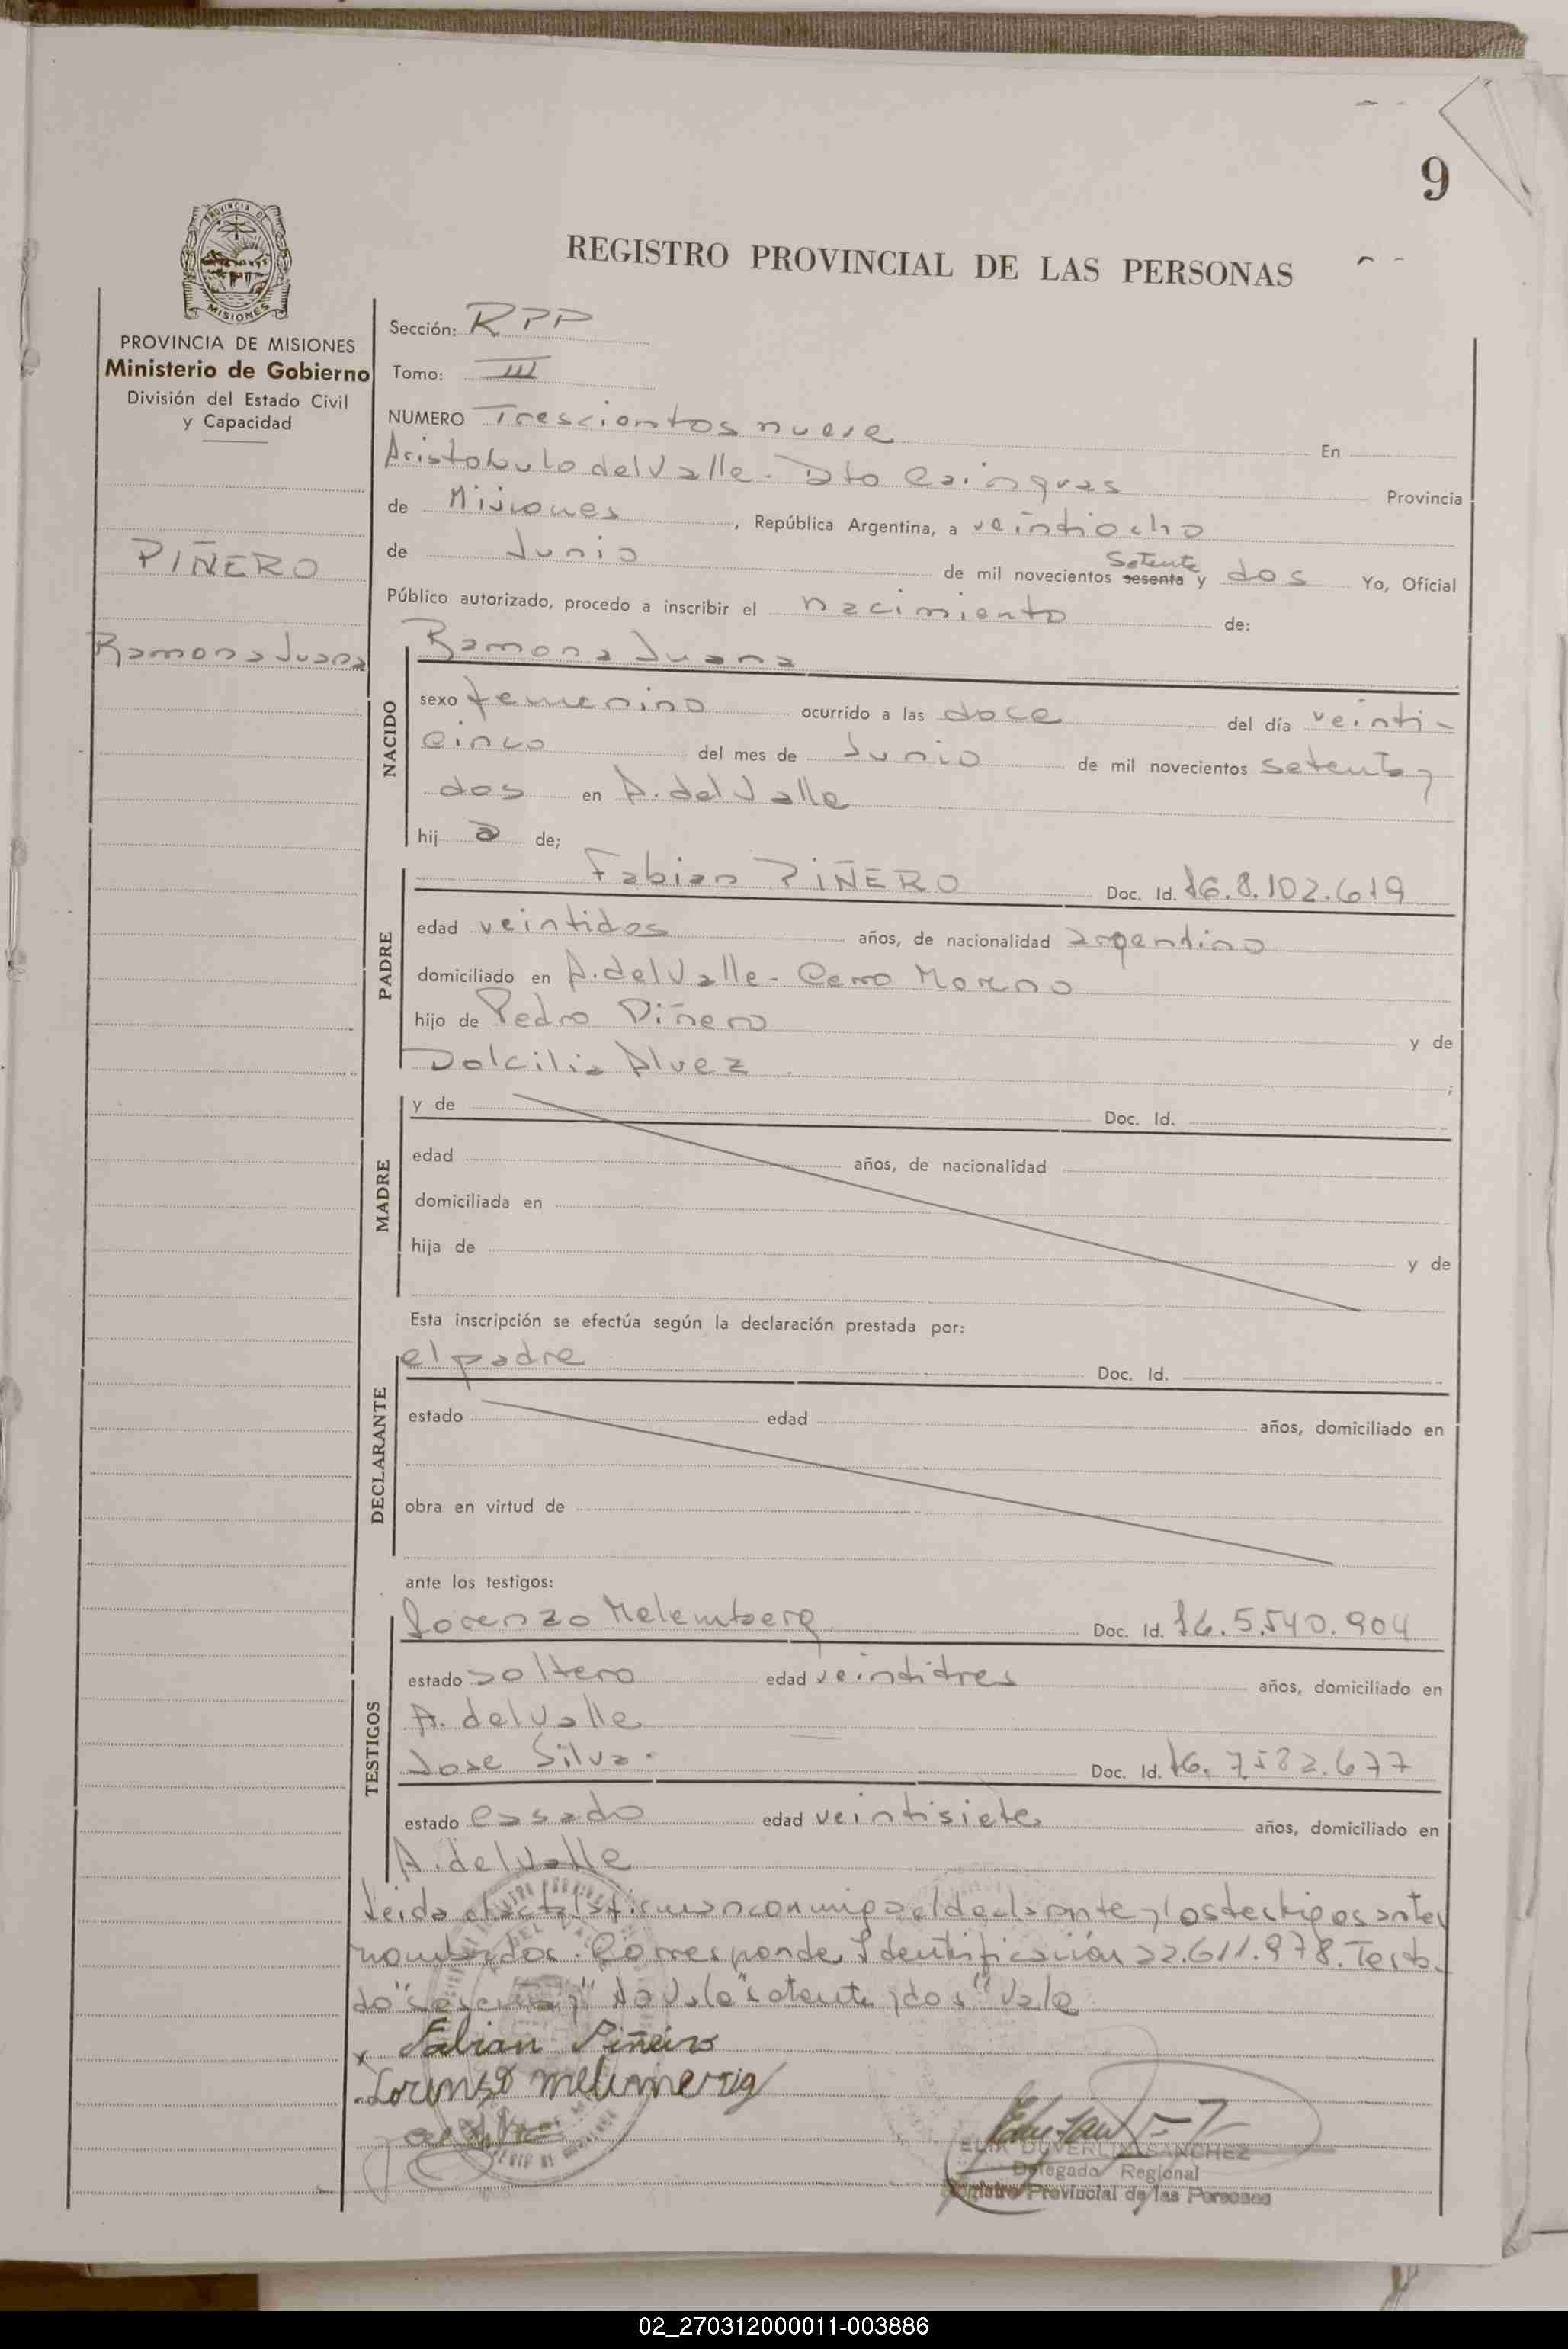 9
PROVINCIA DE
MISIONES
REGISTRO PROVINCIAL DE LAS PERSONAS
PROVINCIA DE MISIONES
Ministerio de Gobierno
División del Estado Civil
y Capacidad
PIÑERO
Ramona Juana
Sección: RPP
Tomo: III
NUMERO Trescientos nueve En
Aristobulo del Valle - Dto Cainguas Provincia
de Misiones, República Argentina, a veintiocho
de Junio de mil novecientos sesenta y Setenta dos Yo, Oficial
Público autorizado, procedo a inscribir el nacimiento de:
NACIDO
Ramona Juana
sexo femenino ocurrido a las doce del día veinti-
cinco del mes de Junio de mil novecientos setenta y
dos en A. del Valle
hij a de;
PADRE
Fabian PIÑERO Doc. Id. 8.102.619
edad veintidos años, de nacionalidad argentino
domiciliado en A. del Valle - Cerro Moreno
hijo de Pedro Piñero y de
Dolcilia Alvez ;
MADRE
y de Doc. Id.
edad años, de nacionalidad
domiciliada en
hija de y de
Esta inscripción se efectúa según la declaración prestada por:
DECLARANTE
el padre Doc. Id.
estado edad años, domiciliado en
obra en virtud de
ante los testigos:
TESTIGOS
Lorenzo Melemberg Doc. Id. 5.540.904
estado soltero edad veintitres años, domiciliado en
A. del Valle
Jose Silva. Doc. Id. 7.582.677
estado casado edad veintisiete años, domiciliado en
A. del Valle
Leida el acta la firman conmigo el declarante y los testigos antes
nombrados. Corresponde Identificación 22.611.978. Testa-
do "sesenta y" No Vale "setenta y dos" Vale
x Fabian Piñeiro
Lorenso melimerig
DUVERLI SANCHEZ
Delegado Regional
Registro Provincial de las Personas
02_270312000011-003886